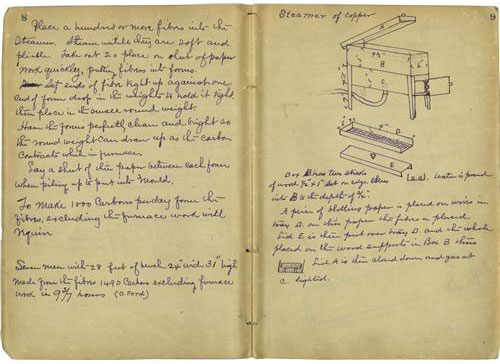 8
Place a hundred or more fibres into the
Steamer. Steam untile they are soft and
pliable Take out 20 place on sheet of paper
work quickly putting fibres into forms.
Set ends of fibre tight up against one
end of form drop in the weights to hold it tight,
then place in the small round weight.
Have the forms perfectly clean and bright so
the round weight can draw up as the carbon
contracts while in furnace.
Lay a sheet of thin paper between each form
when piling up to put into mould.
To make 1000 Carbons per day from the
fibres, excluding the furnace work will
require
Seven men with 28 feet of bench 24" wide 31" high
made from the fibres 1490 Carbons excluding furnace
work in 9 5/7 hours (O. Ford)
Steamer of copper
9
A
B
C
D
E
Box B has two sheds
of wood set on edge
into B to the depth of
Water is poured
A piece of blotting paper is placed on wires in
tray D. on this paper the fibre is placed.
Lid E is then put over tray D. and the whole
placed on the wood supports in Box B thus
Lid A is then closed down and gas at
C. lighted.